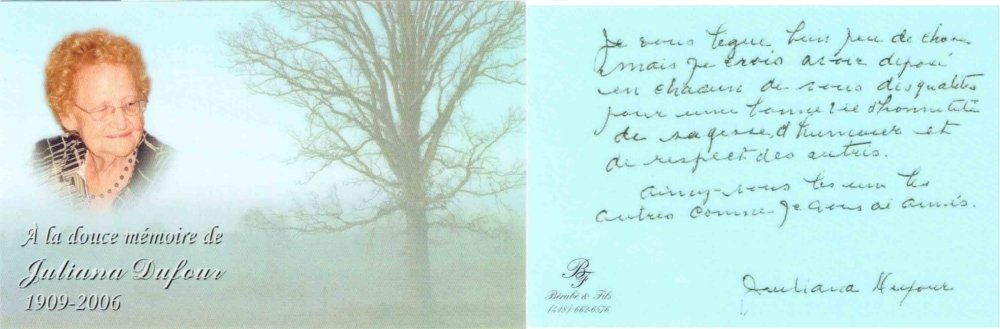 À la douce mémoire de
Juliana Dufour
1909-2006
Je vous legue bien peu de chose
mais je crois avoir deposé
en chacun de vous des qualités
pour une bonne vie d'honnêteté
de sagesse, d'humour et
de respect des autres.
Aimez-vous les uns les
autres comme je vous ai aimés.
Juliana Dufour
BF
Bérubé & Fils
(418) 662-6576